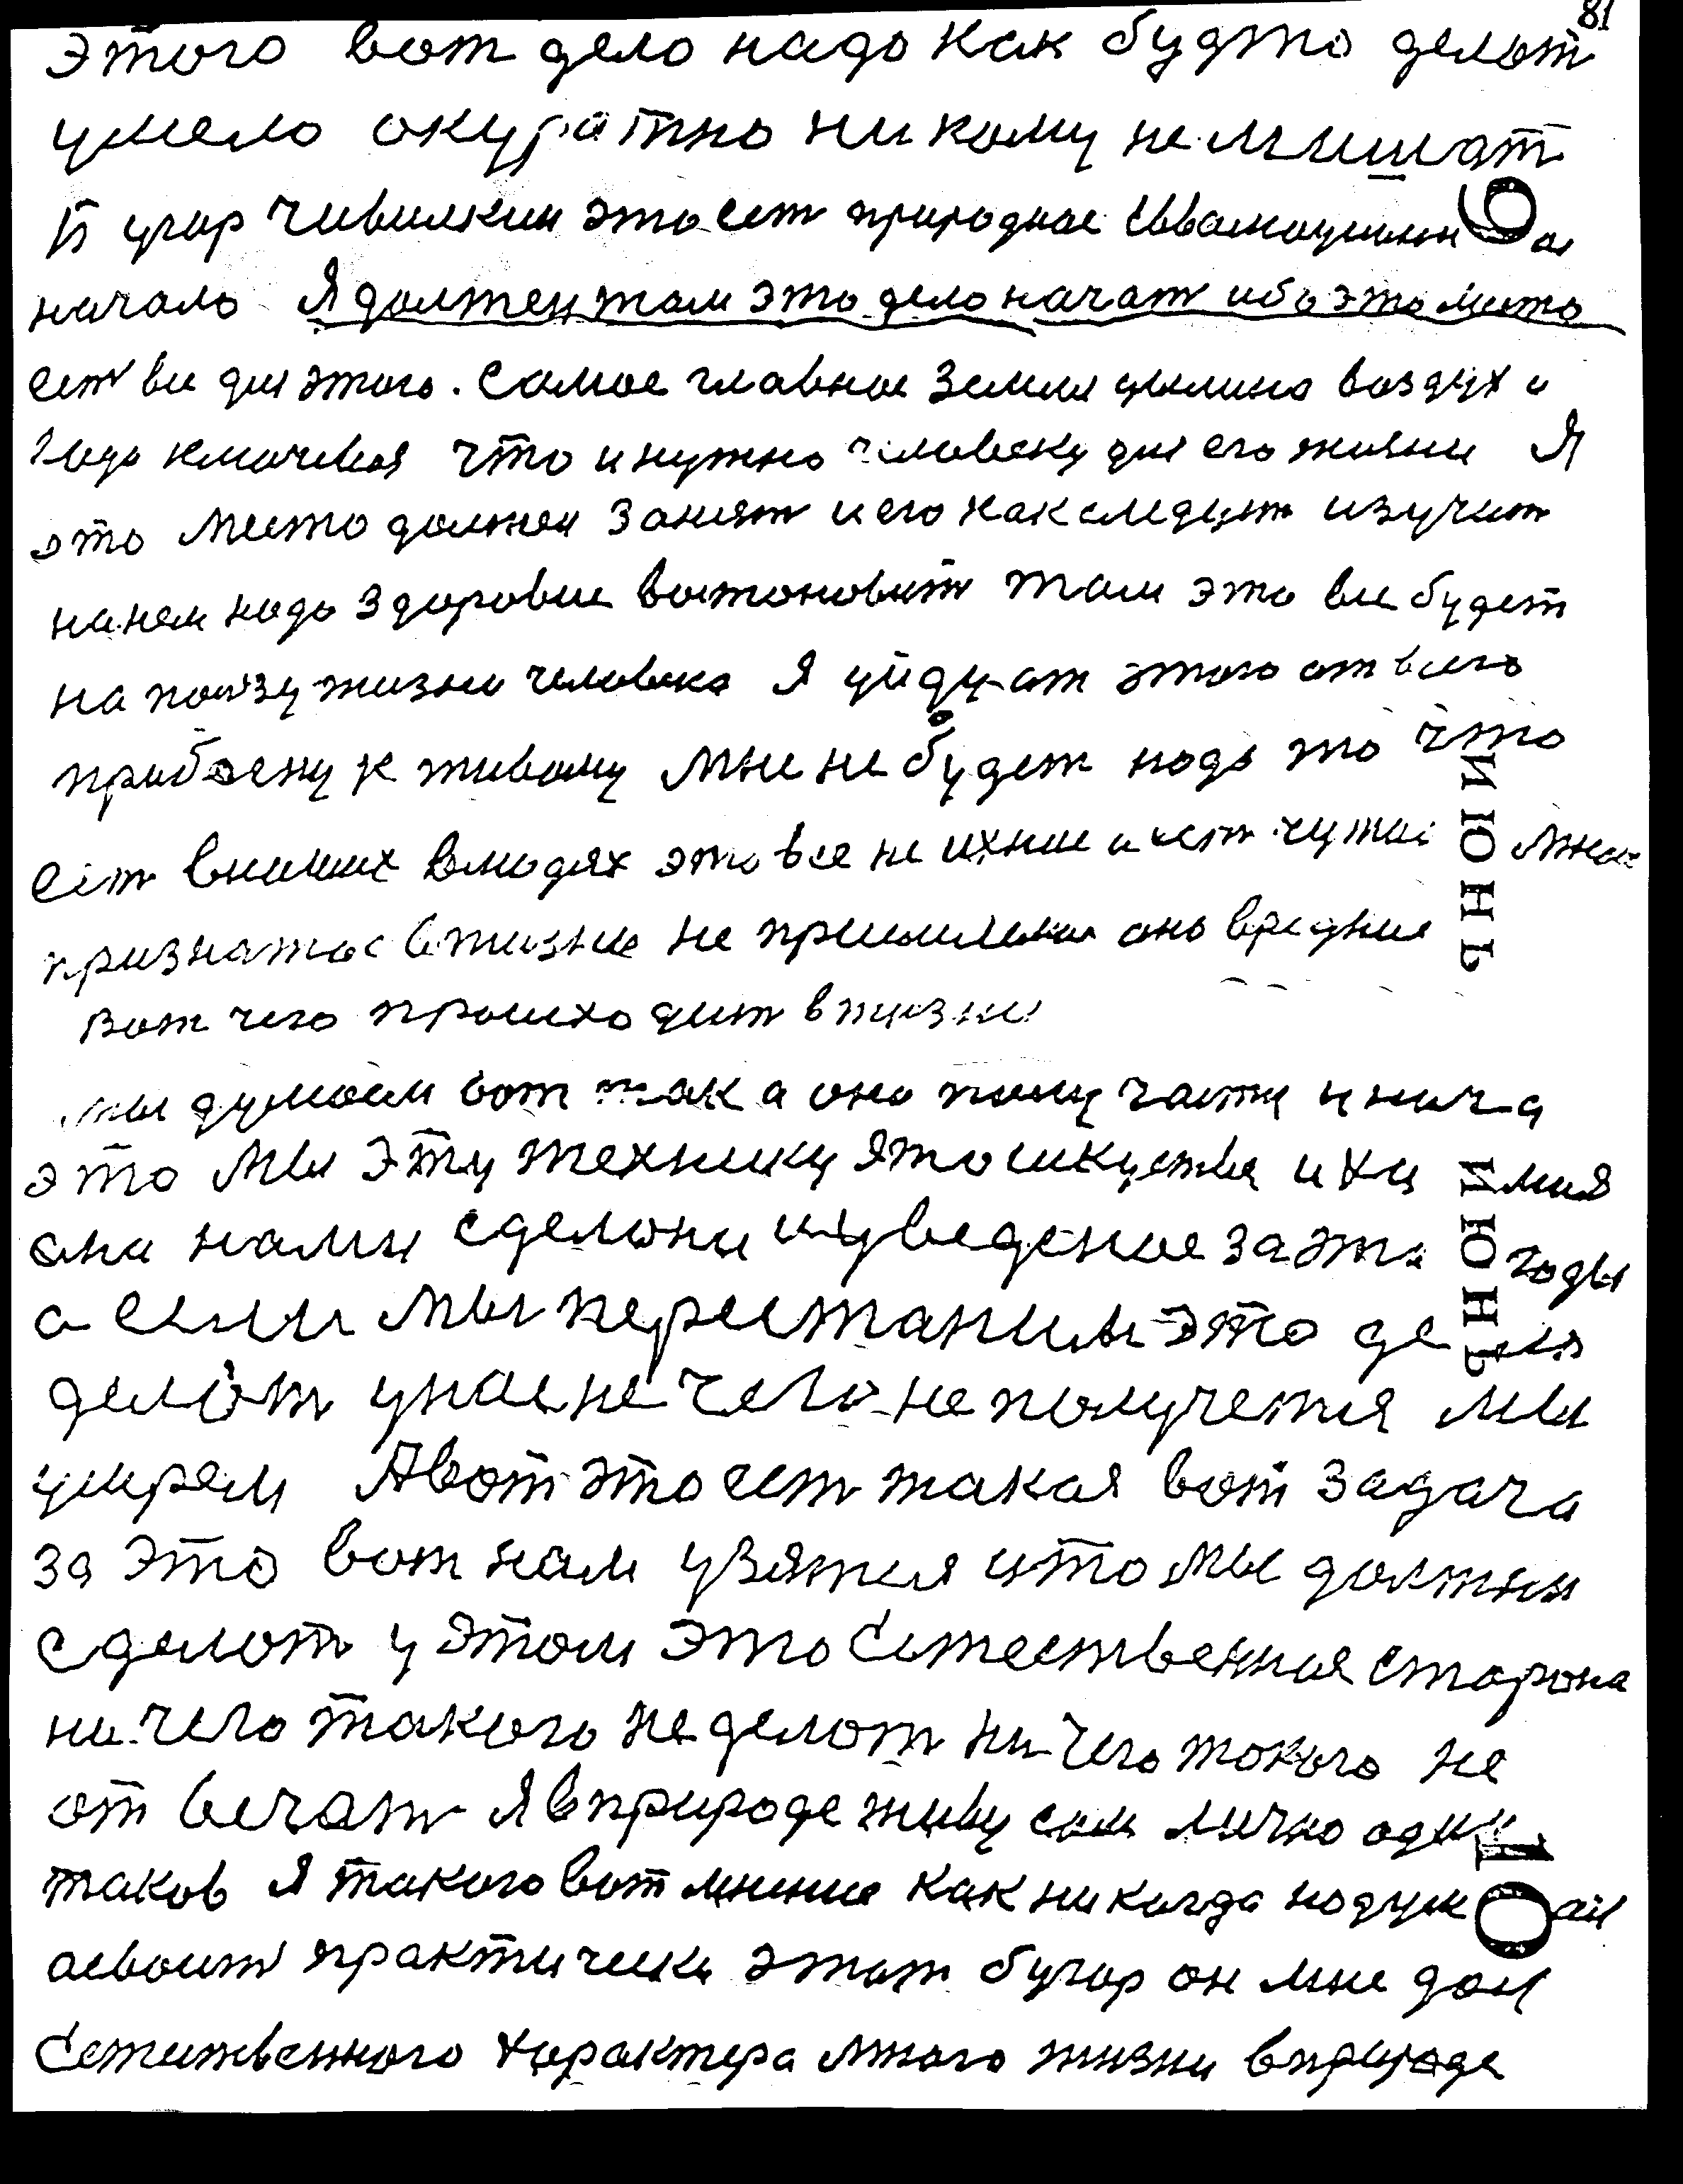 81
этого вот дело надо как будто делат
умело окуратно никому не мишат
угор Чивилкин это ест природное
9
начало Я должен там это дело начат ибо это место
ест все для этого. самое главное земля цылина воздух и
вода ключевая что и нужно человеку для его жизни Я
это место должен занят и его как следует изучит
на нем надо здоровие востоновит там это все будет
на ползу жизни человека Я уйду от этого от всего
прибегну к живому мне не будет надо то что
ИЮНЬ
ест в людях это все не ихние и ест чужое мною
признатое в жизне не оно вредние
вот чего происходит в жизни
мы думаем вот так а оно получаетця иначе
это мы эту технику это искуства и химия
ИЮНЬ
она нами сделони и уведеное за эти годы
а если мы перестаним это дело
делат у нас не чего не получется мы
умрем А вот это ест такая вот задача
за это вот нам узятся и то мы должны
сделот у этом это естественная сторона
ни чего такого не делот ни чего токого не
от вечат Я в природе живу сам лично один
10
таков Я такого вот мнение как никогда надумал
освоит практически этот бугор он мне дал
естественного характера много жизни в природе